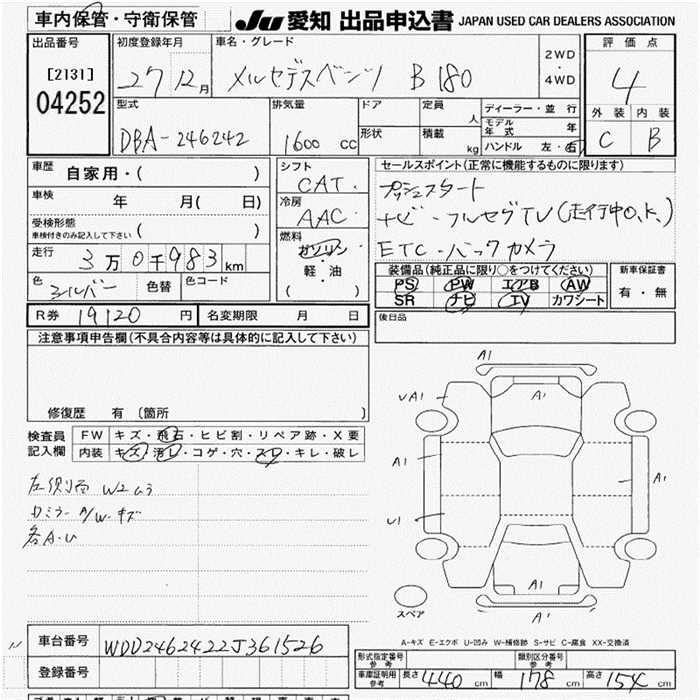 車内保管・守衛保管 JU 愛知 出品申込書 JAPAN USED CAR DEALERS ASSOCIATION
出品番号 初度登録年月 車名・グレード 2WD・4WD 評価点
[2131] 04252 27 12月 メルセデスベンツ B180 4
型式 排気量 ドア 定員 人 ディーラー・並行 外装 内装
DBA-246242 1600 CC 形状 積載 kg モデル年式 年 C B
ハンドル 左・右
車歴 自家用・( ) シフト CAT. セールスポイント(正常に機能するものに限ります)
車検 年 月( 日) 冷房 AAC プッシュスタート
受検形態 車検付きのみ記入して下さい ( ) 燃料 ガソリン・軽・油 ( ) ナビ-フルセグTV(走行中O.K.)
走行 3万0千983km ETC・バックカメラ
色 シルバー 色替 色コード 装備品(純正品に限り○をつけてください) 新車保証書
PS PW エアB AW 有・無
SR ナビ TV カワシート
R券 19120 円 名変期限 月 日 後日品
注意事項申告欄(不具合内容等は具体的に記入して下さい)
修復歴 有 〔箇所 〕
検査員記入欄 FW キズ・飛石・ヒビ割・リペア跡・X要
内装 キズ・汚レ・コゲ・穴・スレ・キレ・破レ
左側面 W2ムラ
ドミラー A/W・キズ
各A・U
A1
UA1 A1
A1 A1
U1
A1
A1
スペア
A-キズ E-エクボ U-凹み W-補修跡 S-サビ C-腐食 XX-交換済
車台番号 WDD2462422J361526 形式指定番号 参考 類別区分番号 参考
登録番号 車庫証明用 参考 長さ 440 cm 幅 178 cm 高さ 154 cm